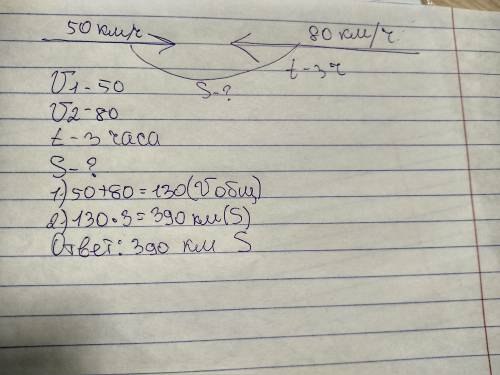 50 км/ч 80 км/ч
t - 3 ч
S - ?
V1 - 50
V2 - 80
t - 3 часа
S - ?
1) 50 + 80 = 130 (Vобщ)
2) 130 • 3 = 390 км (S)
Ответ: 390 км S